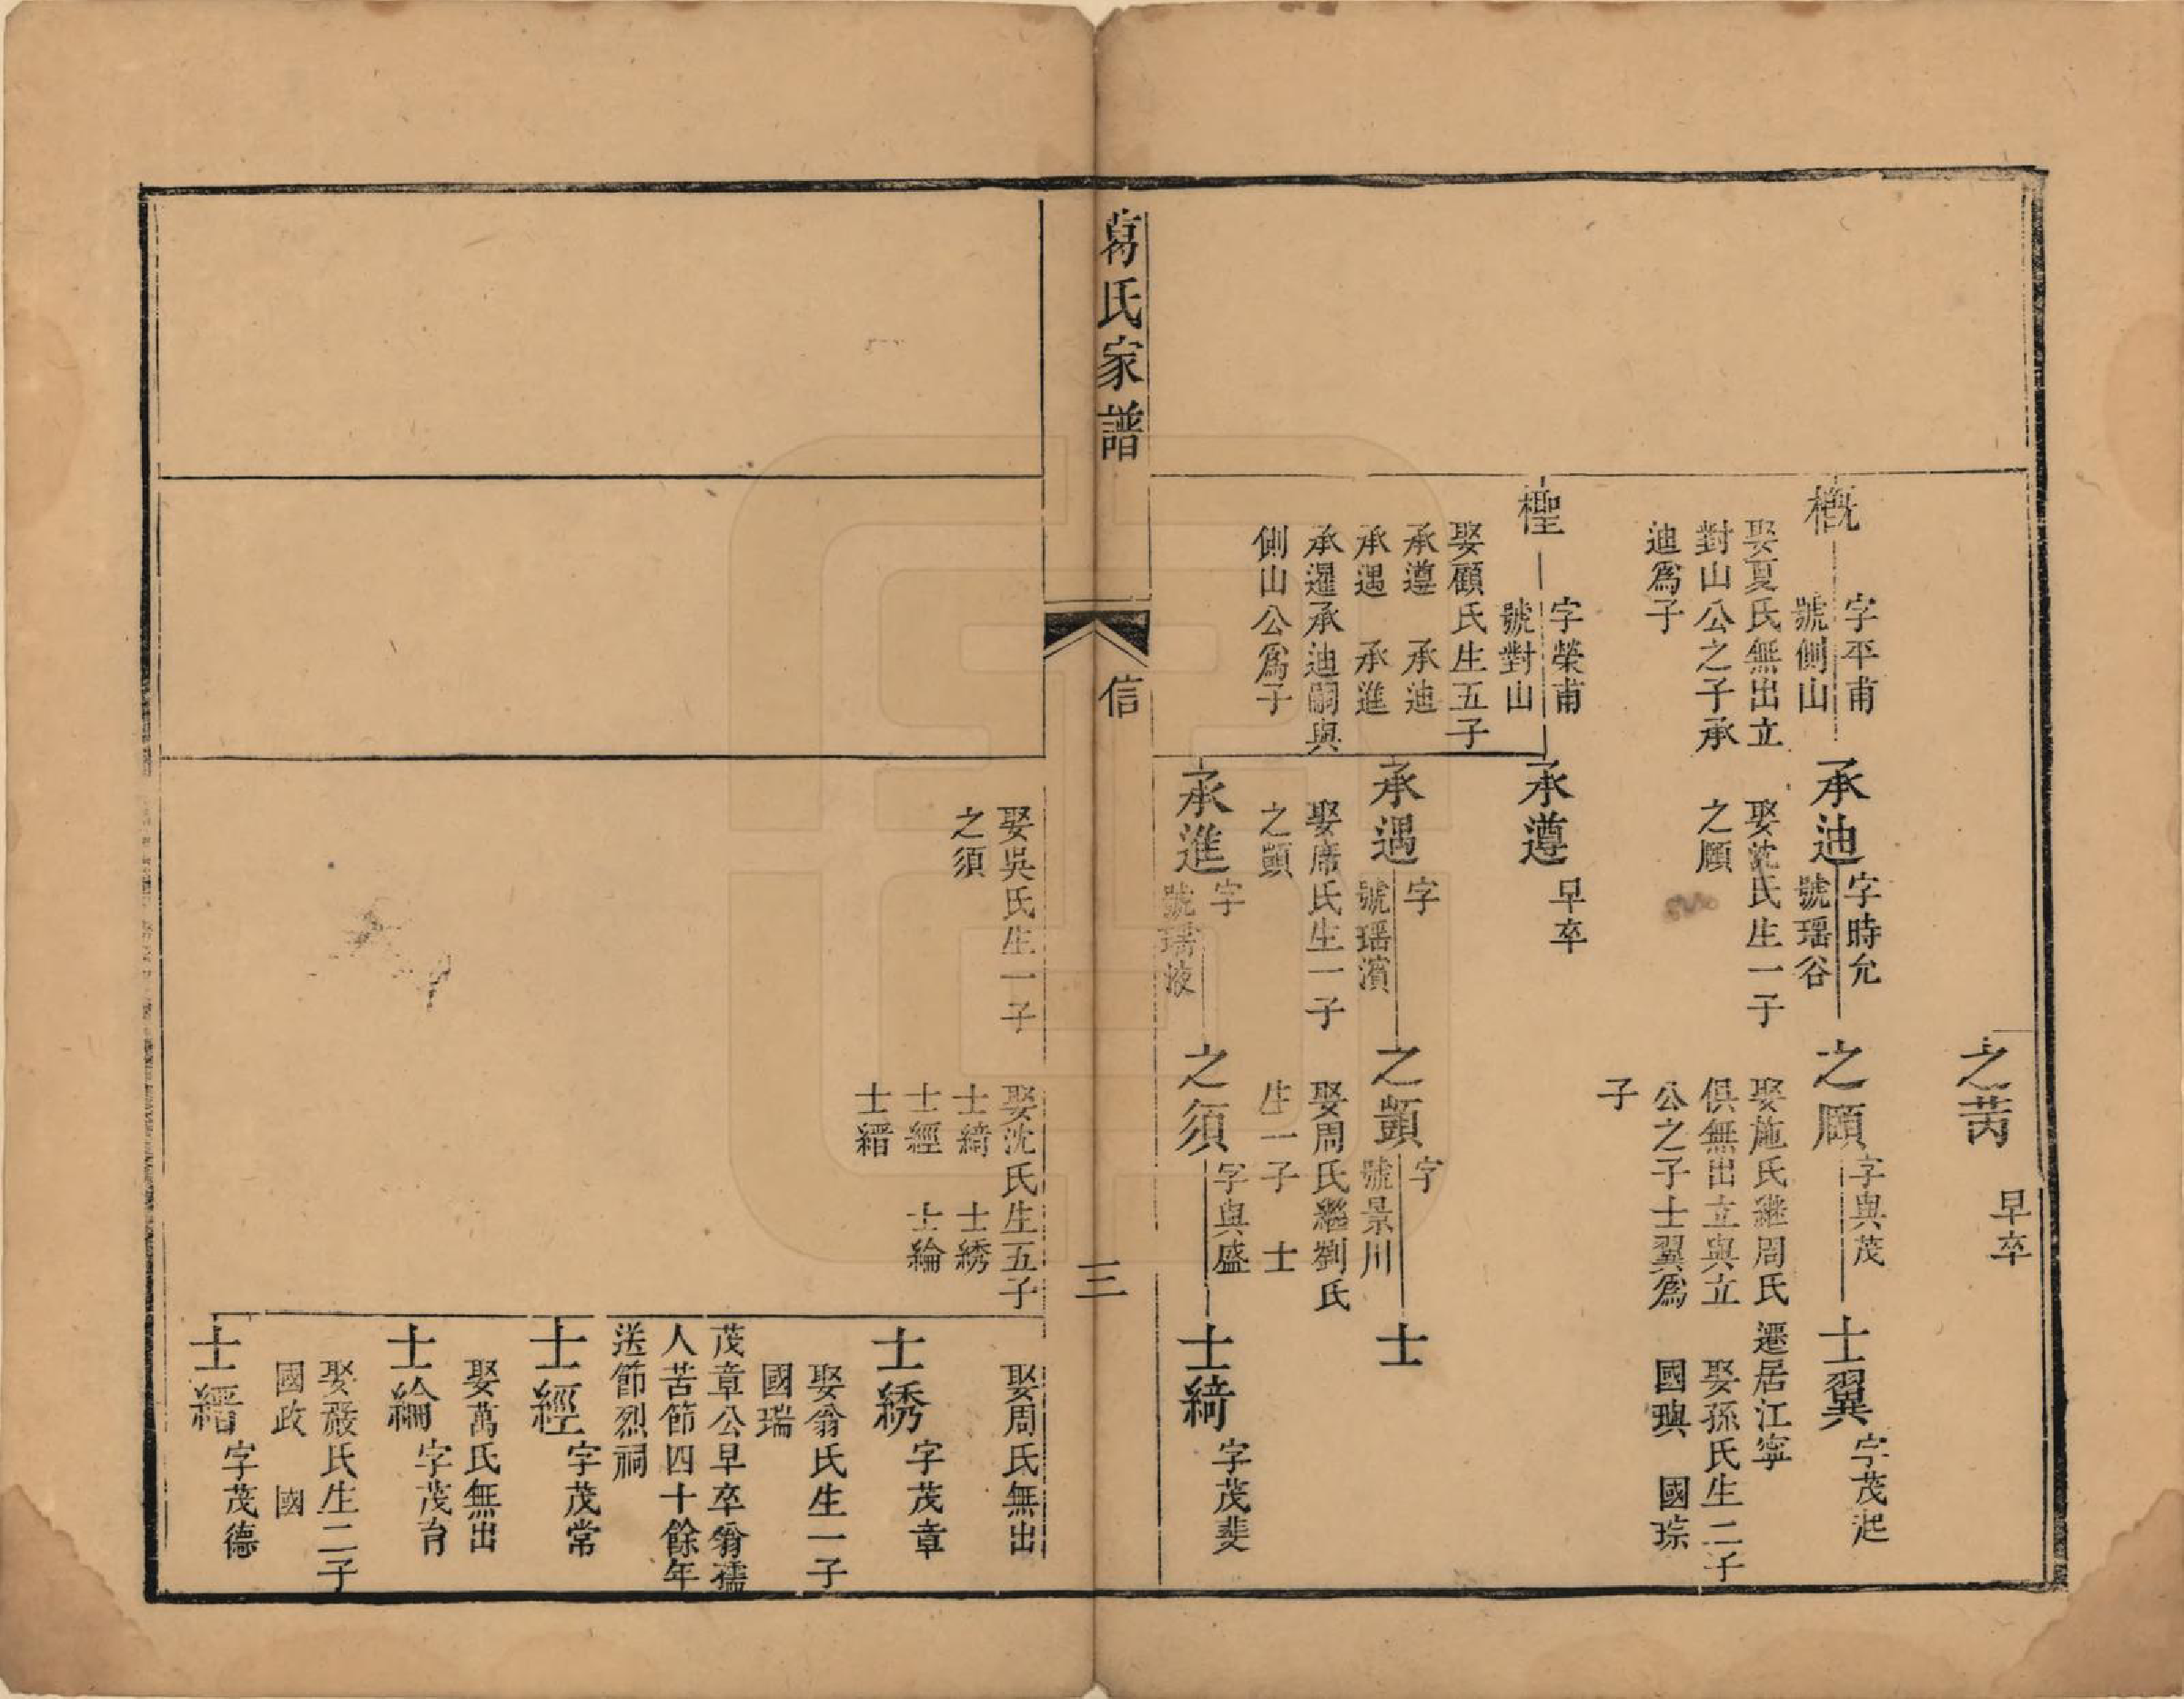 之苪
早卒
概
字平甫
號側山
娶夏氏無出立
對山公之子承
迪爲子
承迪
字時允
號瑶谷
娶沈氏生一子
之願
之願
字與茂
娶施氏繼周氏
俱無出立與立
公之子士翼爲
子
士翼
字茂起
遷居江寧
娶孫氏生二子
國璵 國琮
檉
字榮甫
號對山
娶顧氏生五子
承遵 承迪
承遇 承進
承暹承迪嗣與
側山公爲子
承遵
早卒
承遇
字
號瑶濱
娶席氏生一子
之顗
之顗
字
號景川
娶周氏繼劉氏
生一子 士
士
承進
字
號瑞液
之須
字與盛
士綺
字茂斐
葛氏家譜
信
三
娶吳氏生一子
之須
娶沈氏生五子
士綺 士綉
士經 士綸
士縉
娶周氏無出
士綉
字茂章
娶翁氏生一子
國瑞
茂章公早卒翁孺
人苦節四十餘年
送節烈祠
士經
字茂常
娶萬氏無出
士綸
字茂育
娶嚴氏生二子
國政 國
士縉
字茂德